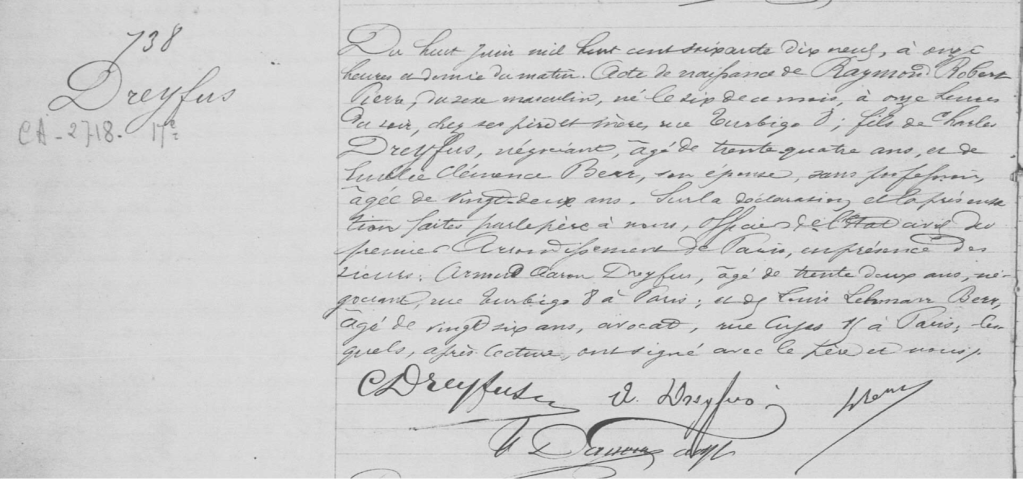 738
Dreyfus
CA-2718. 17e
Du huit Juin mil huit cent soixante dix neuf, à onze
heures et demie du matin. Acte de naissance de Raymond Robert
Pierre, du sexe masculin, né le six de ce mois, à onze heures
du soir, chez ses père et mère, rue Turbigo 8; fils de Charles
Dreyfus, négociant, âgé de trente quatre ans, et de
Clémence Berr, son épouse, sans profession,
âgée de vingt-deux ans. Sur la déclaration et la présenta
tion faites par le père à nous, officier de l'Etat civil du
premier Arrondissement de Paris, en présence des
sieurs: Aaron Dreyfus, âgé de trente deux ans, né-
gociant, rue Turbigo 8 à Paris; et de Louis Lehmann Berr,
âgé de vingt six ans, avocat, rue Cujas à Paris; les-
quels, après lecture, ont signé avec le père et nous.
C Dreyfus
A. Dreyfus